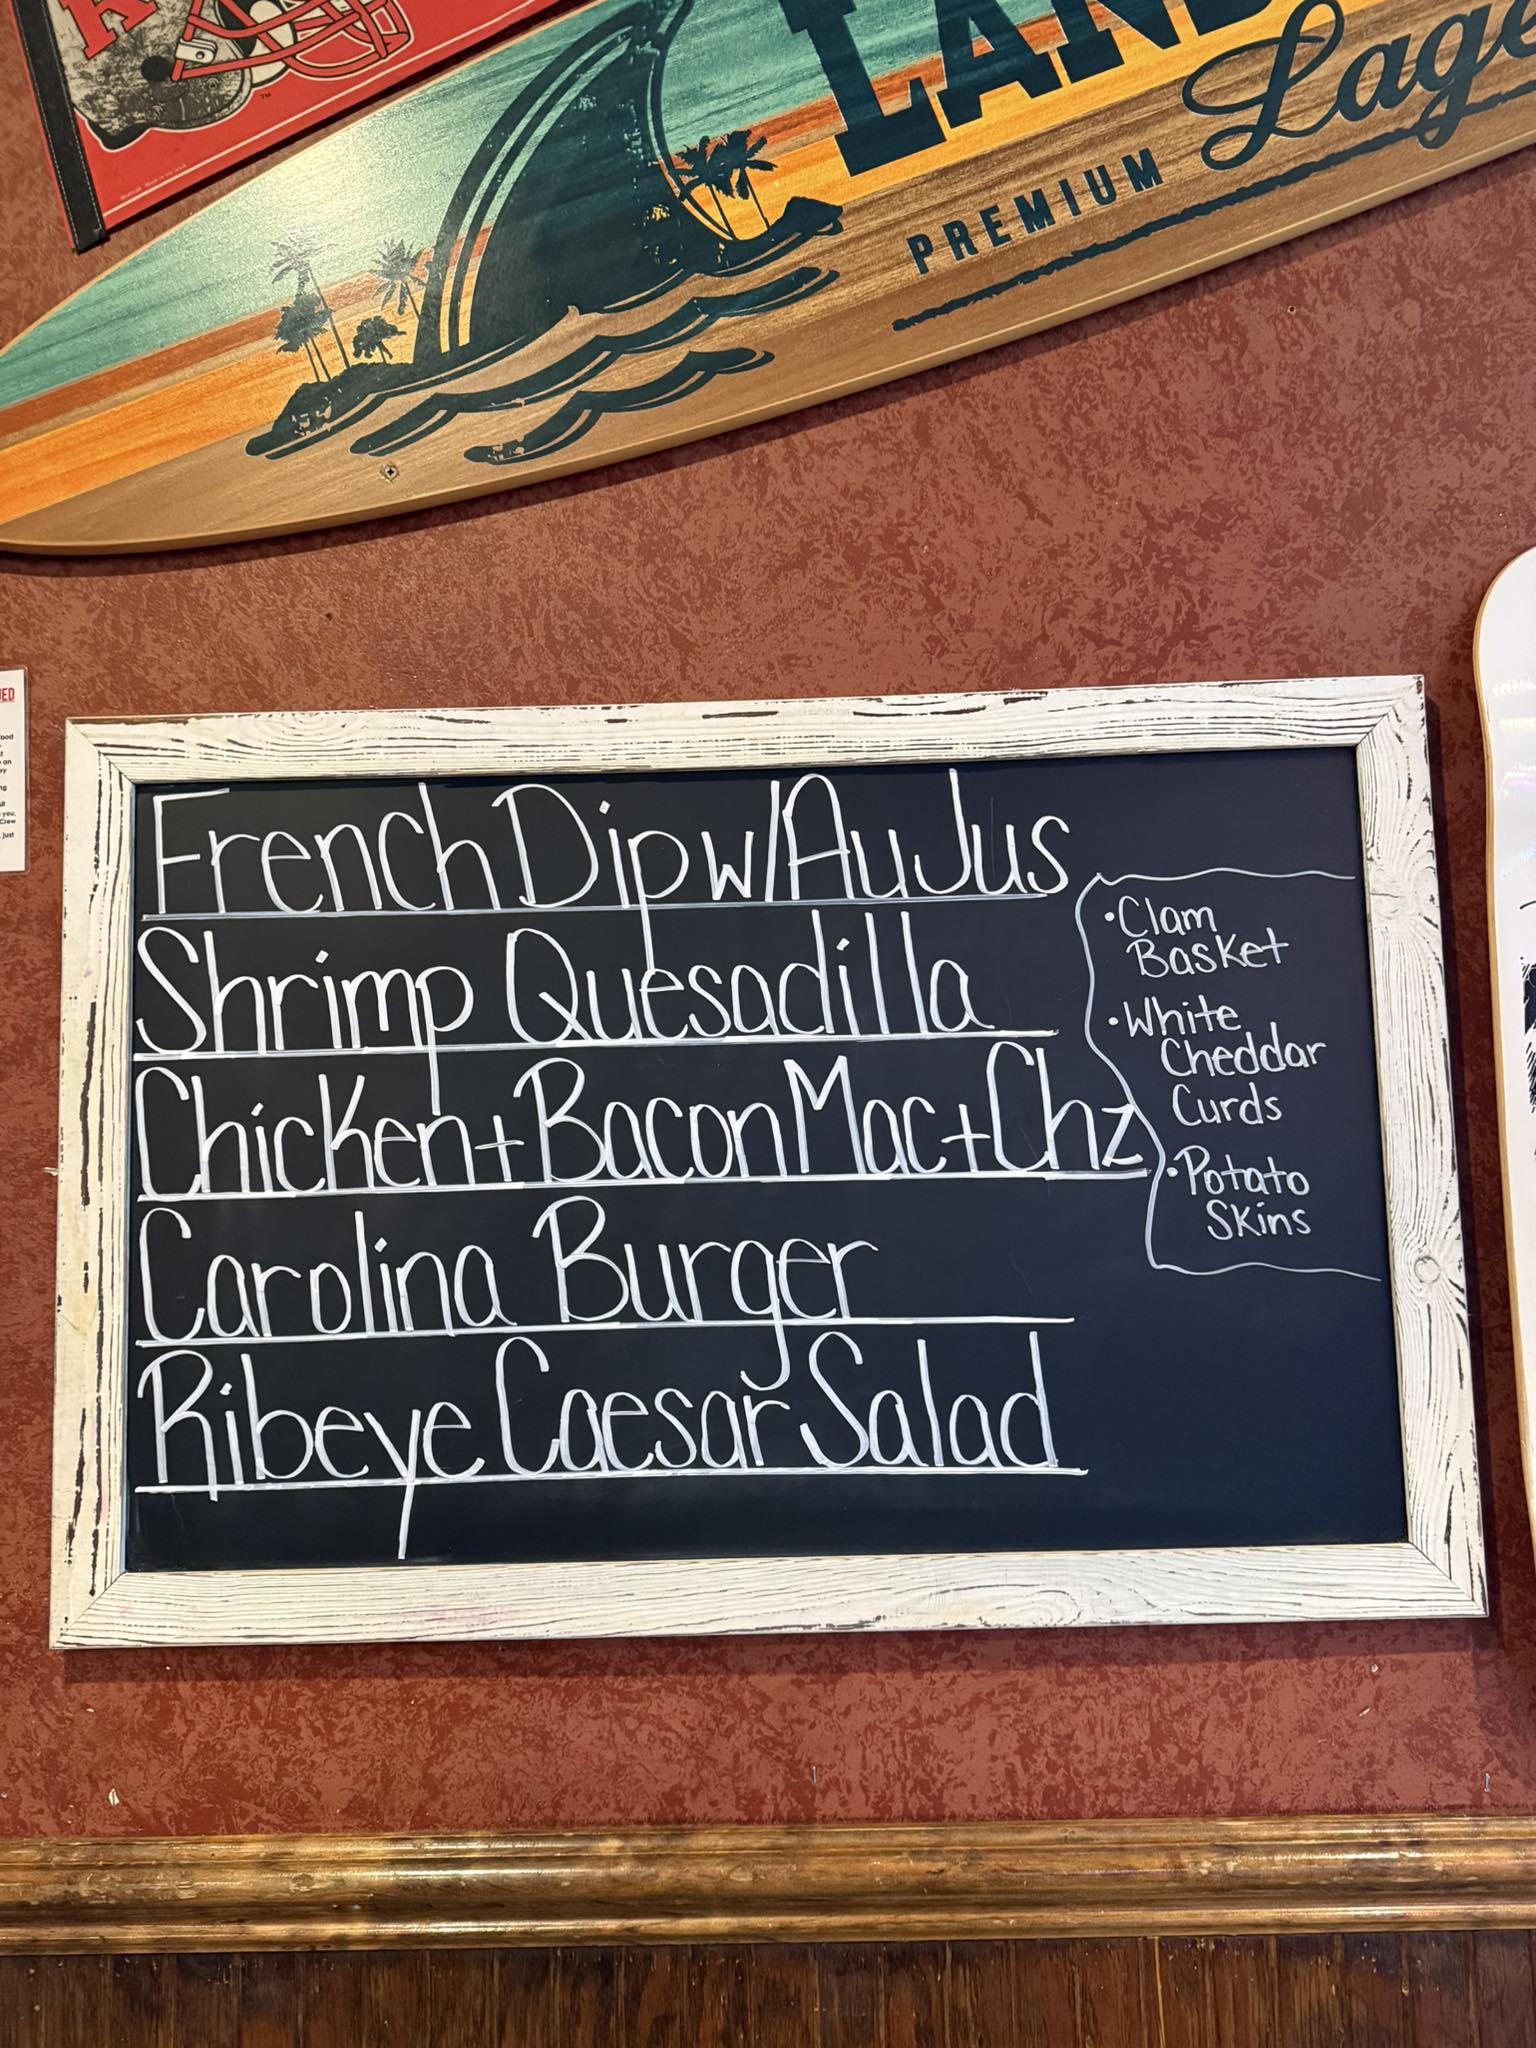 PREMIUM
French Dip w/ Au Jus
Shrimp Quesadilla
Chicken + Bacon Mac + Chz
Carolina Burger
Ribeye Caesar Salad
• Clam
Basket
• White
Cheddar
Curds
• Potato
Skins